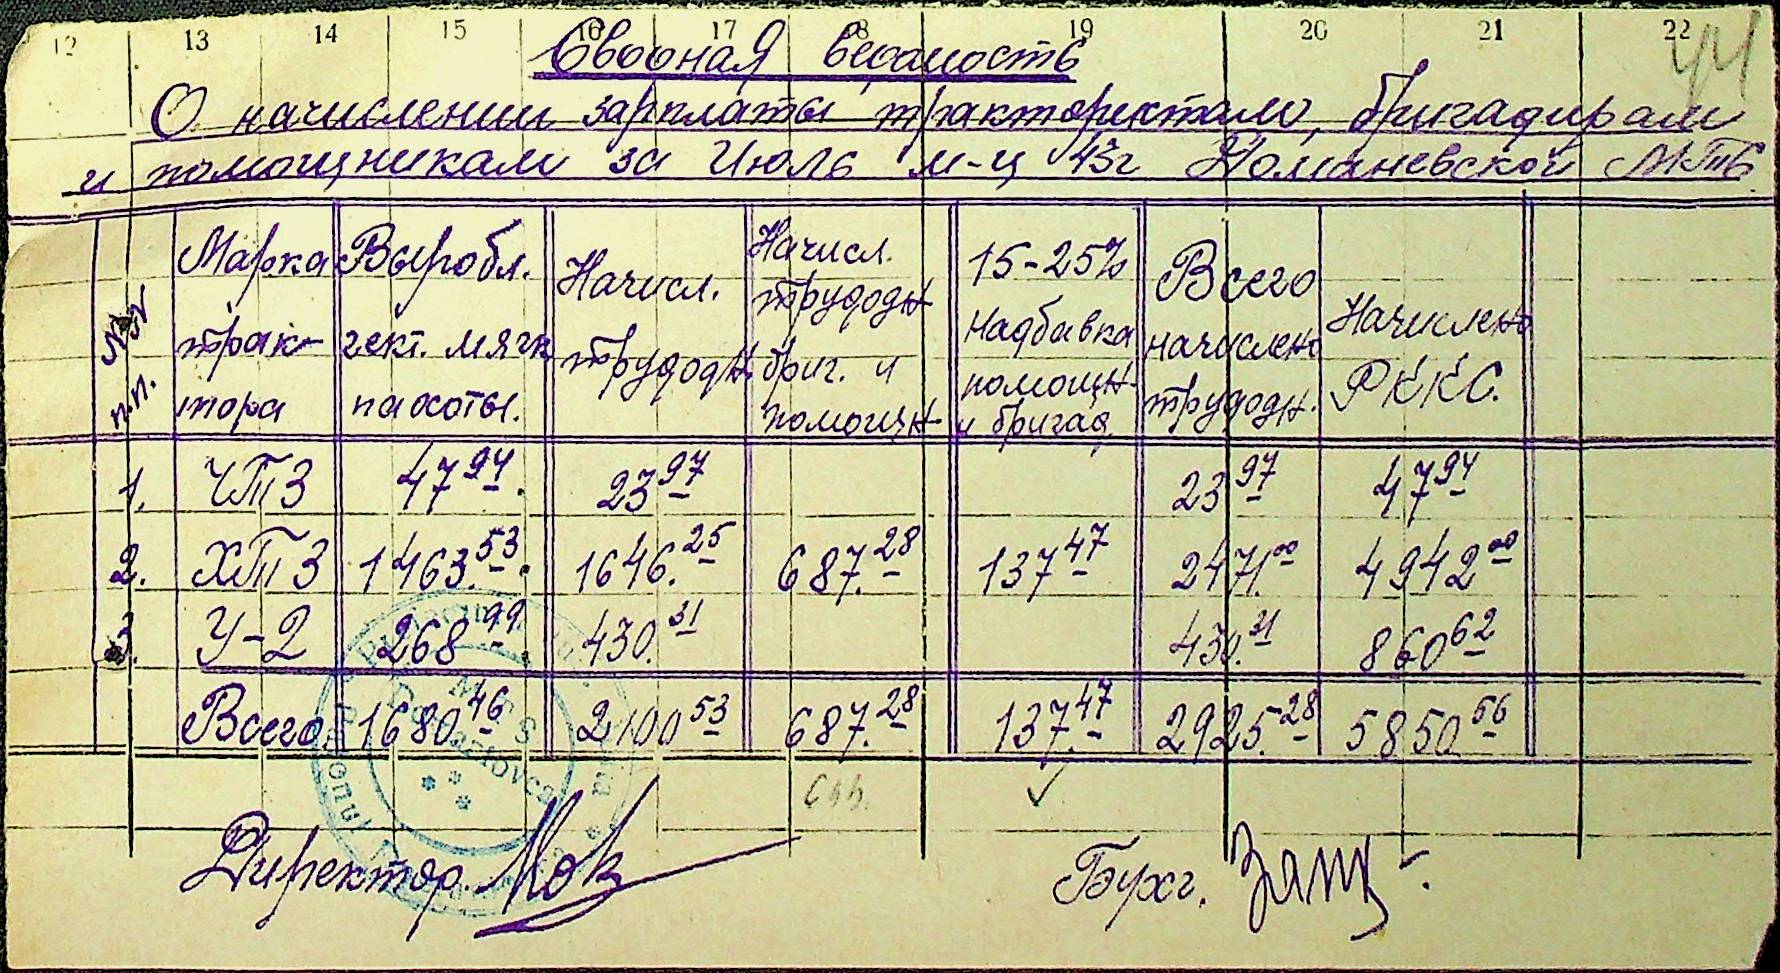 12 13 14 15 16 17 18 19 20 21 22
Сводная ведомость
О начислении зарплаты трактористам, бригадирам
и помощникам за Июль м-ц 43г МТС
№№ п.п. | Марка трактора | Выробл. гект. мягк пахоты. | Начисл. трудодн. | Начисл. трудодн бриг. и помощн | 15-25% надбавка помощн. и бригад. | Всего начислено трудодн. | Начислено РККС.
1. | ЧТЗ | 47 94. | 23 97 | | | 23 97 | 47 94
2. | ХТЗ | 1463.53. | 1646.25 | 687.28 | 137 47 | 2471.00 | 4942 00
3. | У-2 | 268 99. | 430.31 | | | 430.31 | 860 62
Всего | 1680 46 | 2100 53 | 687.28 | 137.47 | 2925.28 | 5850 56
MTS
Директор.
Бухг.